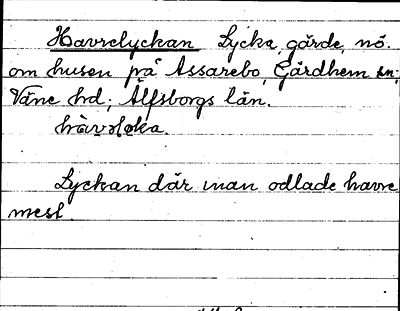 Havrelyckan Lycka, gärde, nö.
om husen på Assarebo, Gärdhem sn;
Väne hd; Älfsborgs län.

Lyckan där man odlade havre
mest.